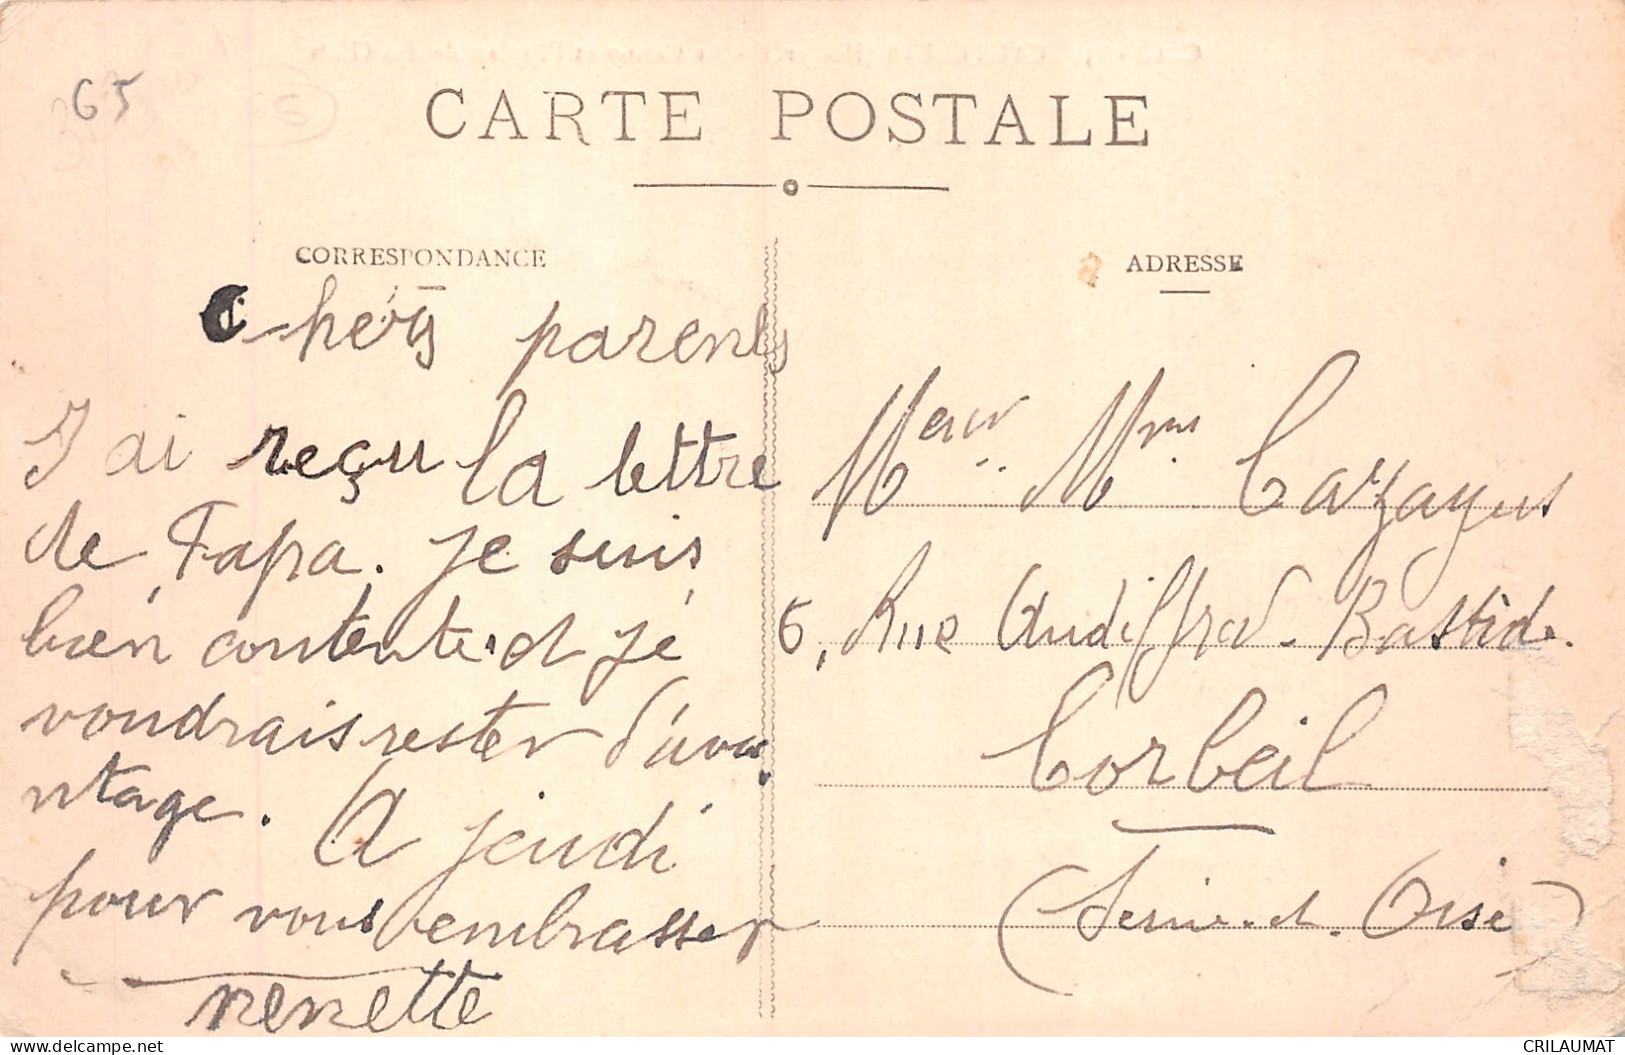 65
CARTE POSTALE
CORRESPONDANCE
Chers parents
J'ai reçu la lettre
de Papa. Je suis
bien contente et je
voudrais rester d'ava
ntage. A jeudi
pour vous embrasser
nenette
ADRESSE
Meeur. Mme Cazayus
6, Rue Audiffred-Bastide.
Corbeil
(Seine-et-Oise)
CRILAUMAT